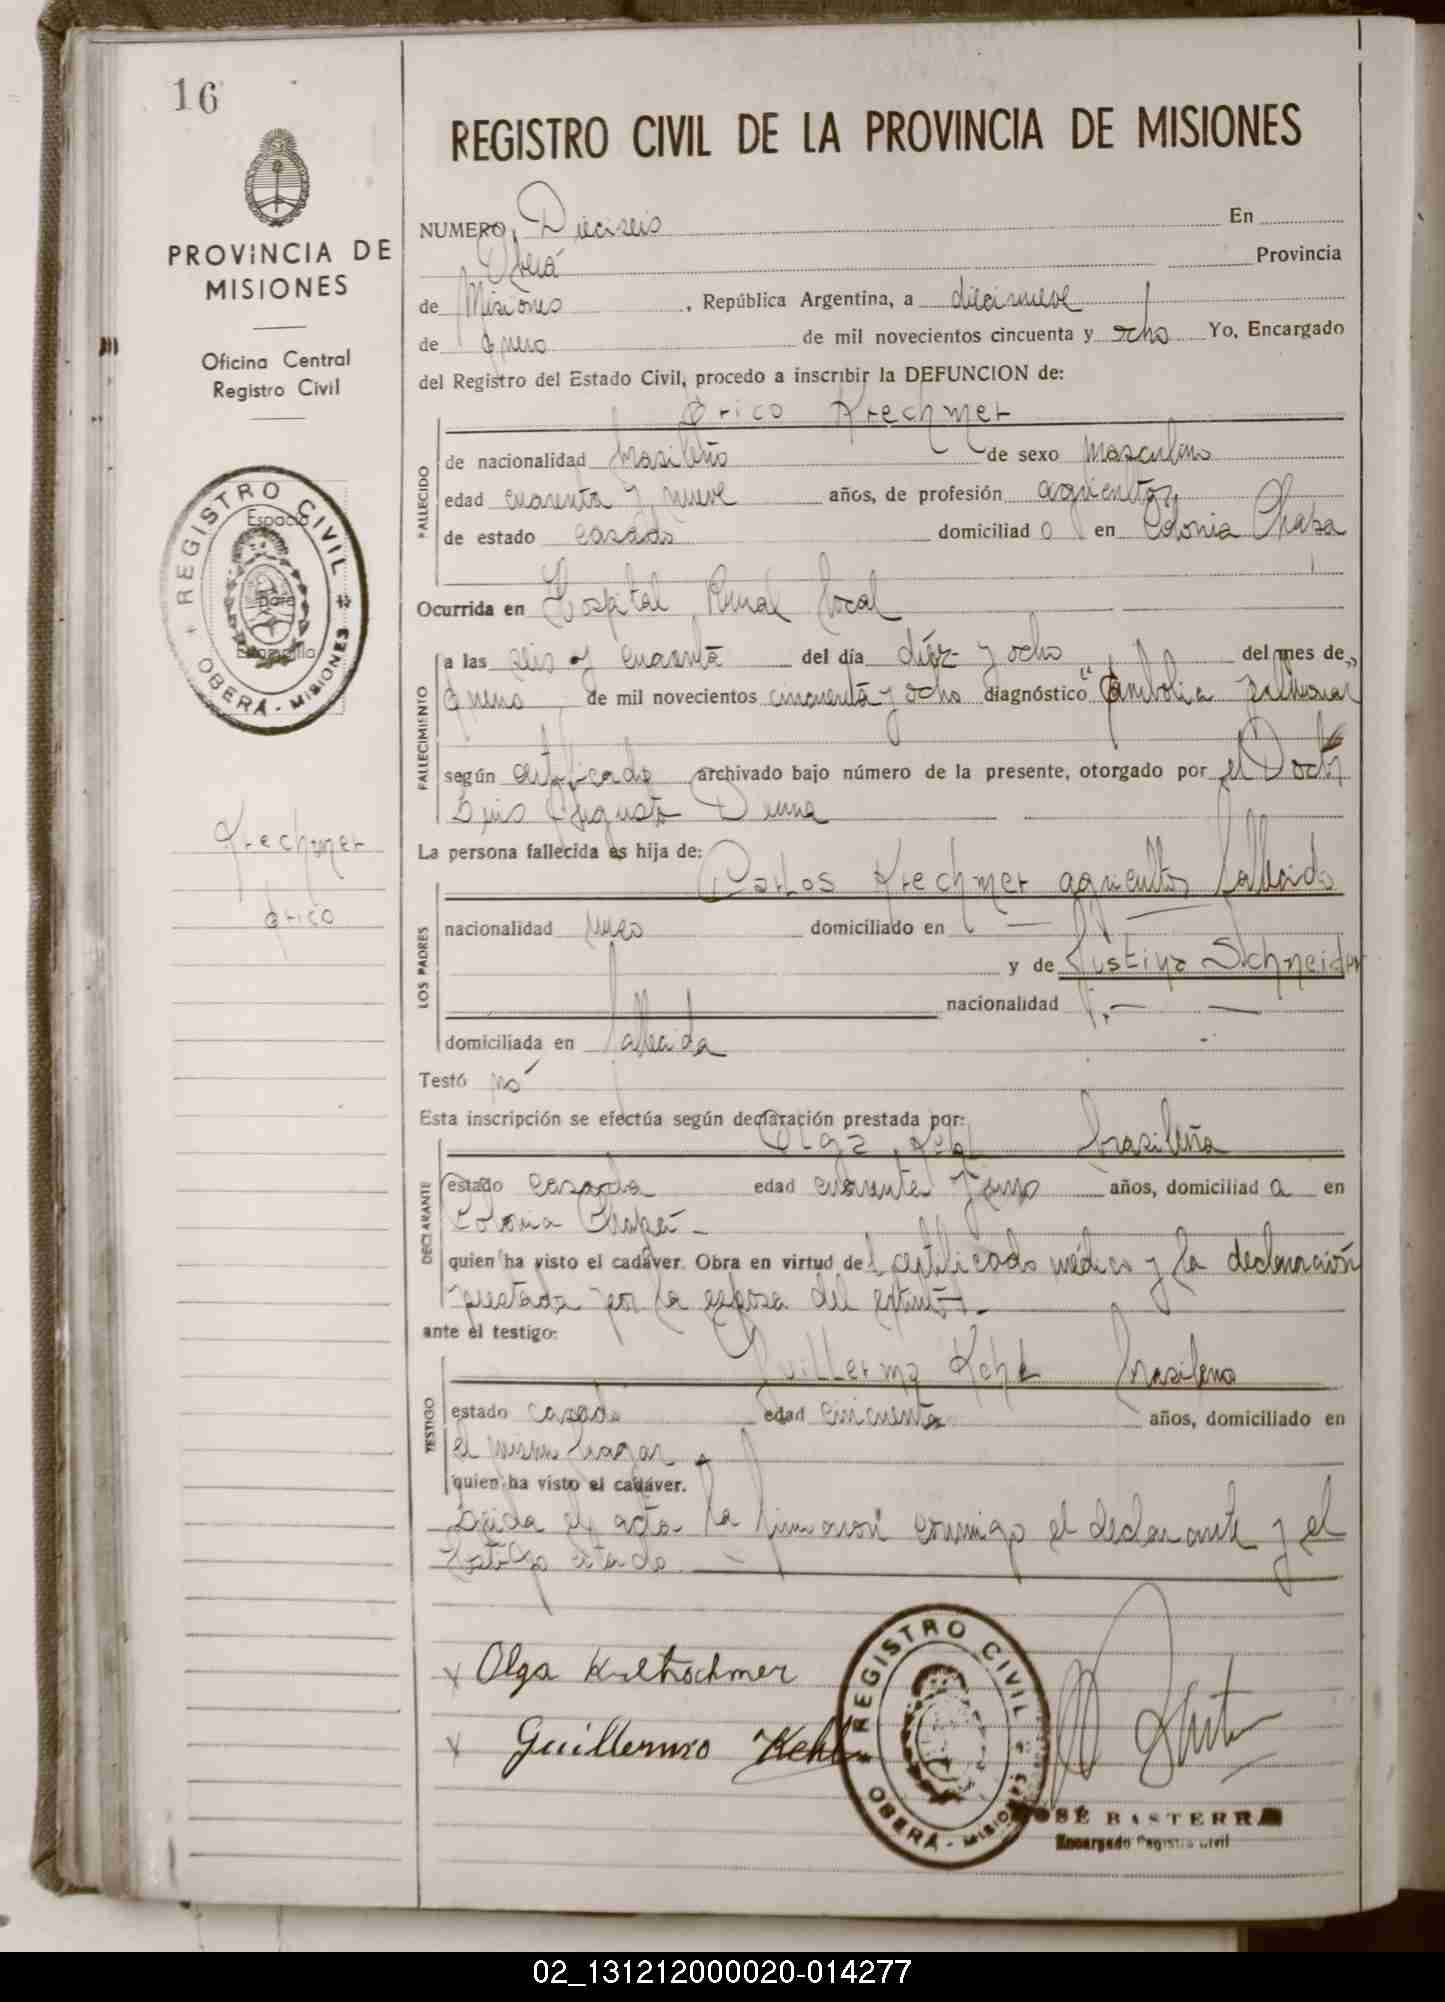 16
PROVINCIA DE
MISIONES
Oficina Central
Registro Civil
REGISTRO CIVIL
Espacio
para
Estampilla
OBERÁ - MISIONES
Krechmer
Erico
REGISTRO CIVIL DE LA PROVINCIA DE MISIONES
NUMERO Dieciseis En
Oberá Provincia
de Misiones, República Argentina, a diecinueve
de Enero de mil novecientos cincuenta y ocho Yo, Encargado
del Registro del Estado Civil, procedo a inscribir la DEFUNCION de:
Erico Krechmer
FALLECIDO
de nacionalidad brasileño de sexo masculino
edad cuarenta y nueve años, de profesión agricultor
de estado casado domiciliad o en Colonia Chapa
Ocurrida en Hospital Rural local
FALLECIMIENTO
a las seis y cuarenta del día diez y ocho del mes de
Enero de mil novecientos cincuenta y ocho diagnóstico "Embolia pulmonar"
según certificado archivado bajo número de la presente, otorgado por el Doctor
Luis Augusto
La persona fallecida es hija de:
Carlos Krechmer agricultor fallecido
LOS PADRES
nacionalidad ruso domiciliado en —
y de Justina Schneider
nacionalidad — —
domiciliada en fallecida
Testó no
Esta inscripción se efectúa según declaración prestada por:
Olga Kehl brasileña
DECLARANTE
estado casada edad cuarenta y uno años, domiciliad a en
Colonia Chapá -
quien ha visto el cadáver. Obra en virtud del certificado médico y la declaración
prestada por la esposa del extinto -
ante el testigo:
Guillermo Kehl brasileno
TESTIGO
estado casado edad cincuenta años, domiciliado en
el mismo lugar
quien ha visto el cadáver.
Leida el acta la firmaron conmigo el declarante y el
testigo citado
x Olga Kretschmer
x Guillermo Kehl
REGISTRO CIVIL
OBERÁ - MISIONES
JOSÉ BASTERRA
Encargado Registro Civil
02_131212000020-014277